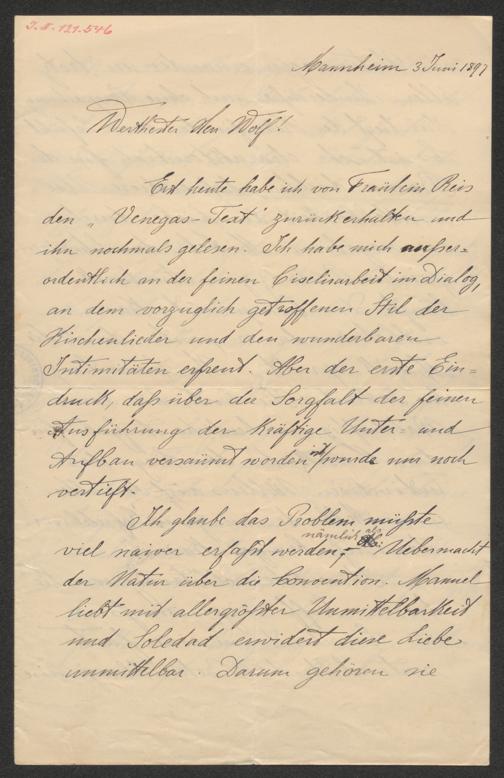 I.N. 121.546
Mannheim 3 Juni 1897
Werthester Herr Wolf!
Erst heute habe ich von Fräulein Reis
den „Venegas-Text" zurückerhalten und
ihn nochmals gelesen. Ich habe mich außer=
ordentlich an der feinen Ciselirarbeit im Dialog,
an dem vorzüglich getroffenen Stil der
Kirchenlieder und den wunderbaren
Intimitäten erfreut. Aber der erste Ein=
druck, daß über der Sorgfalt der feinen
Ausführung der kräftige Unter- und
Aufbau versäumt worden ist, wurde nur noch
vertieft.
Ich glaube das Problem müßte
viel naiver erfaßt werden, nämlich als Uebermacht
der Natur über die Convention. Manuel
liebt mit allergrößter Unmittelbarkeit
und Soledad erwidert diese Liebe
unmittelbar. Darum gehören sie